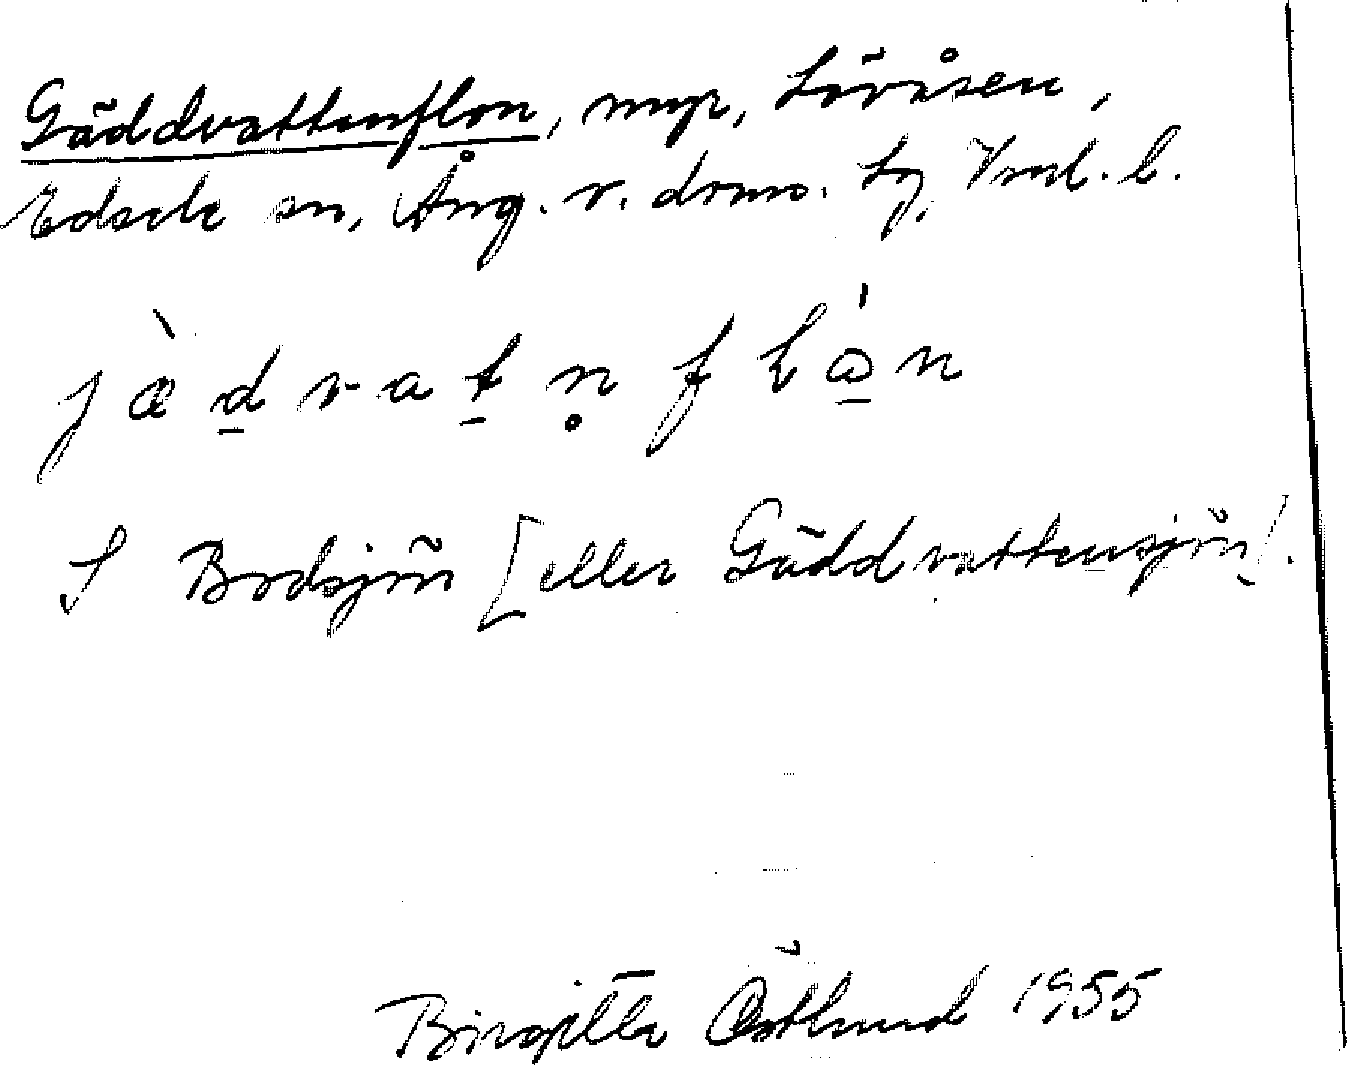 Gäddvattenflon, myr, Lövåsen,
Edsele sn, Ång. v. doms. lg, Vnl. l.
jæ̀d̲vat̲n̥fḷa̲̍n
S Bodsjön [eller Gäddvattensjön].
Birgitta Östlund 1955